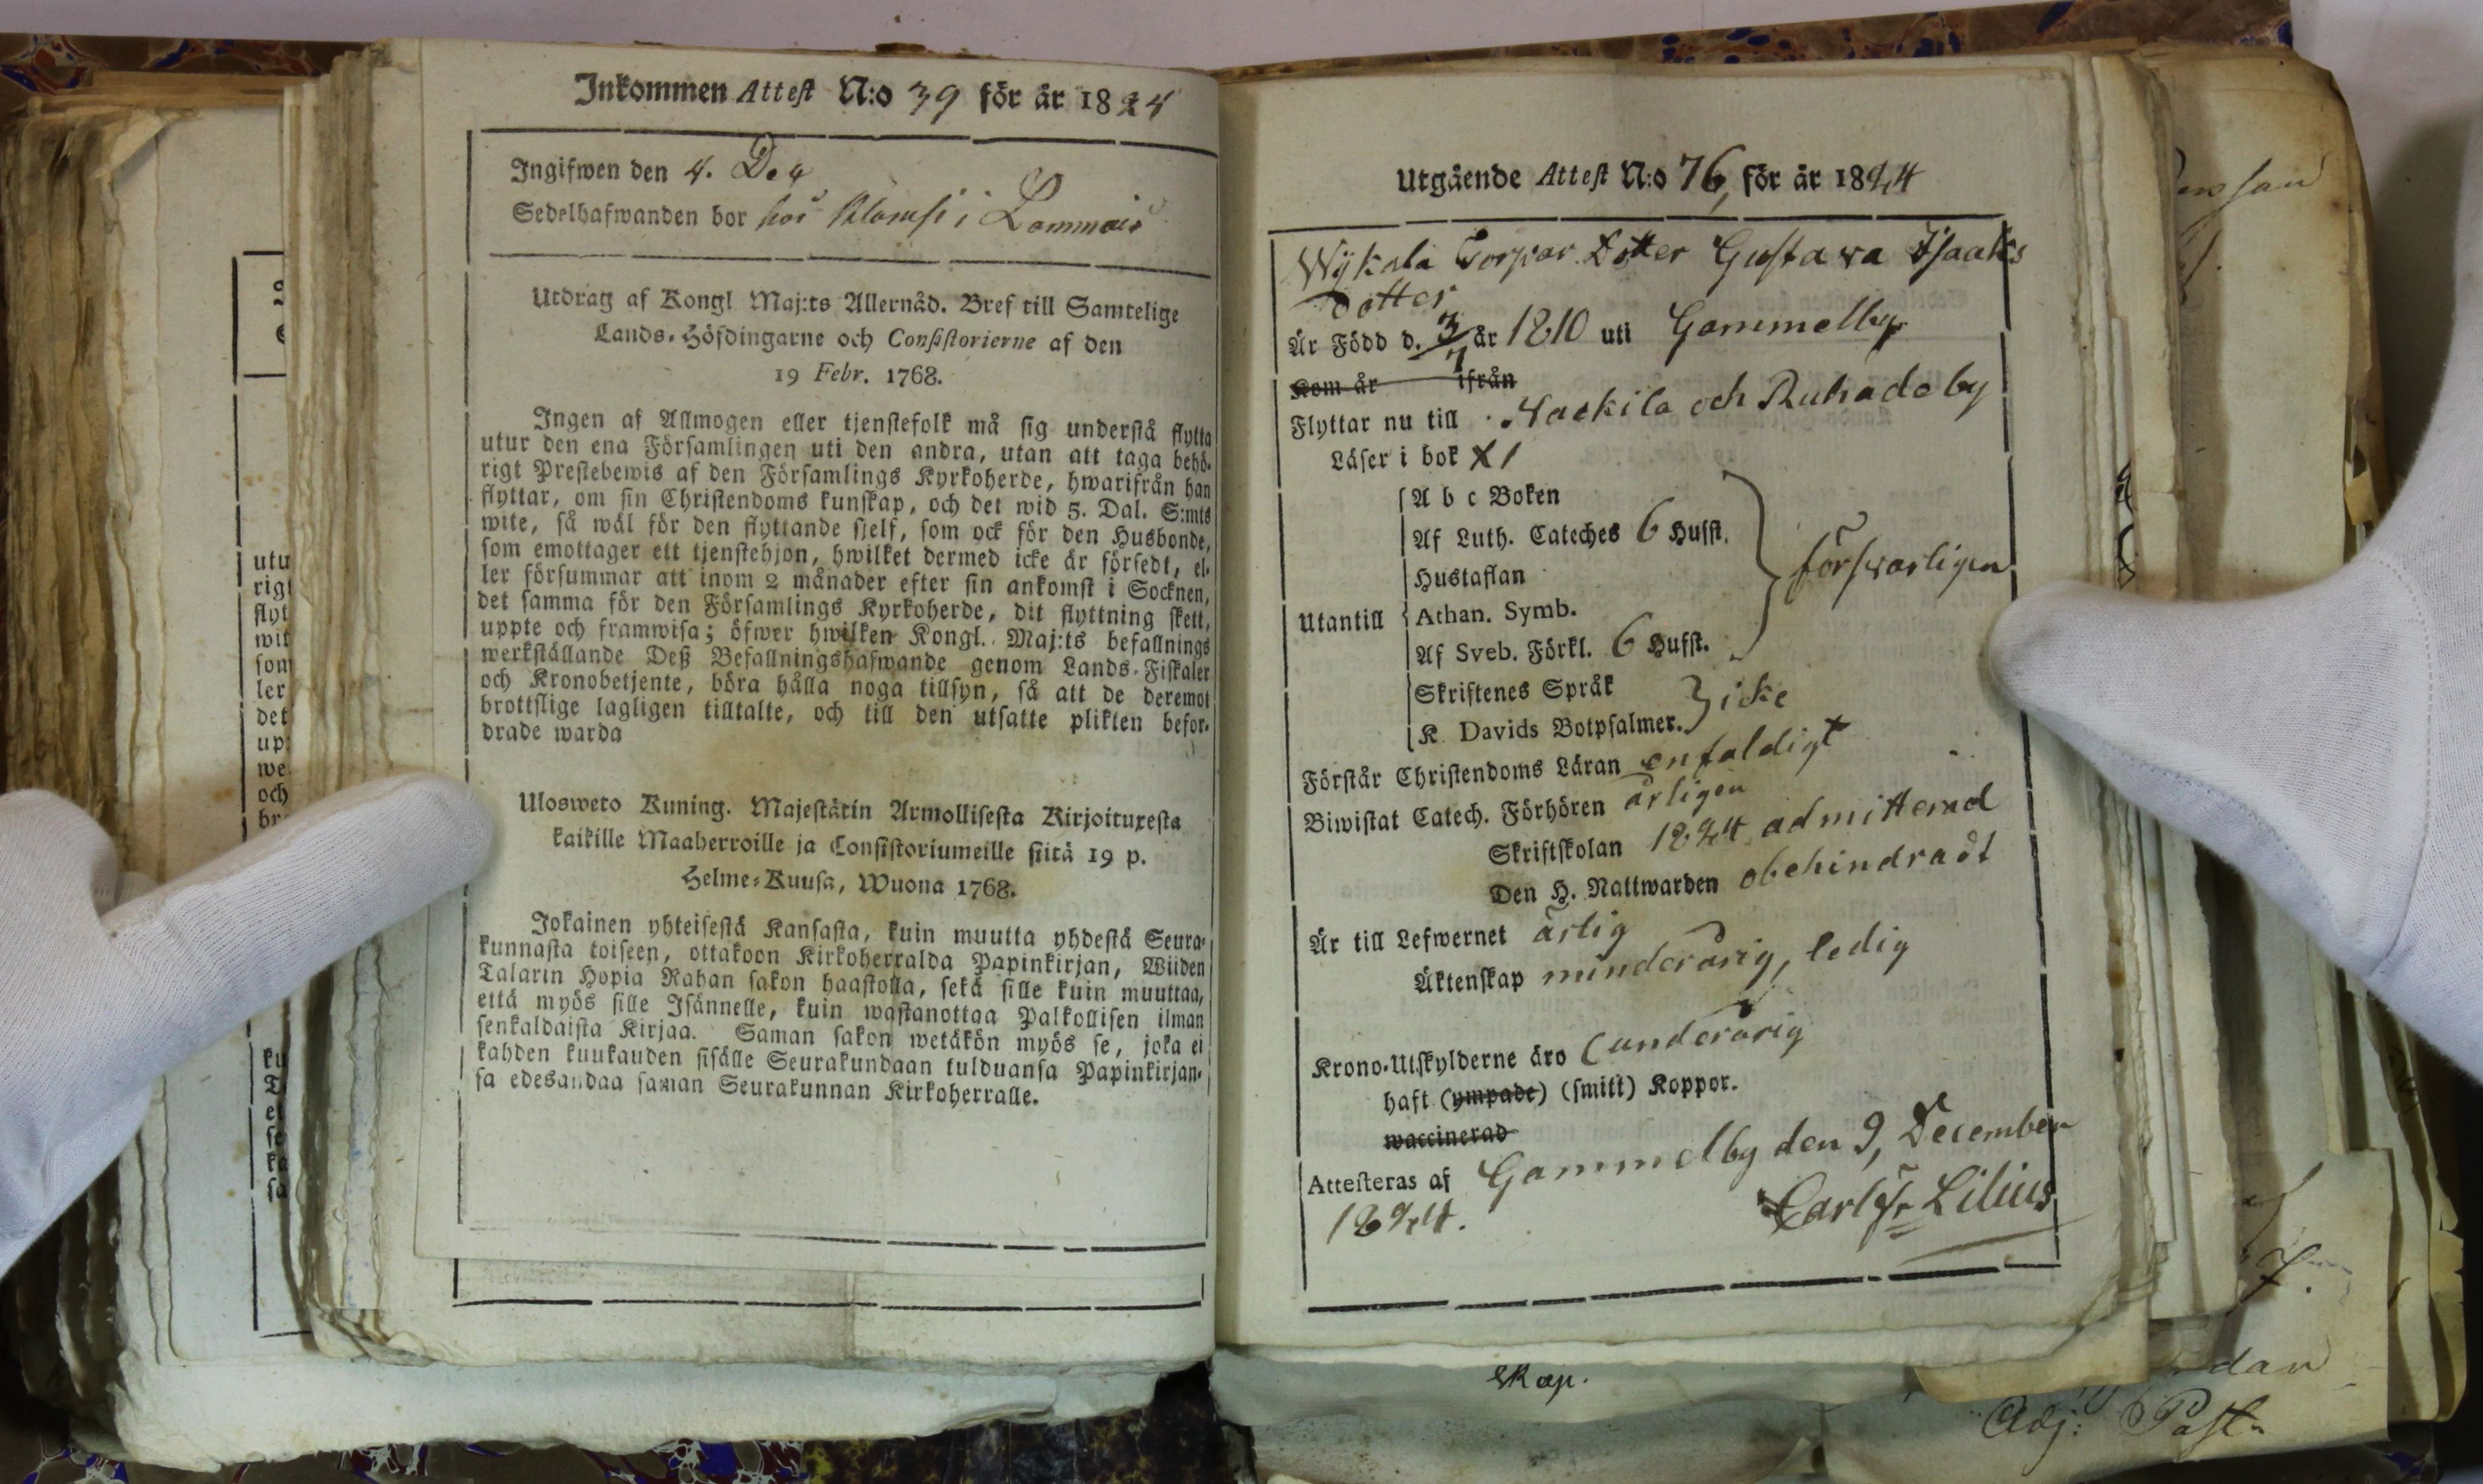 Inkommen Attest N:o 39 för år 1824
Ingifwen den 4. Dec
Sedelhafwanden bor hos i
Utdrag af Kongl Maj:ts Allernåd. Bref till Samtelige
Lands-Höfdingarne och Consistorierne af den
19 Febr. 1768.
Ingen af Allmogen eller tjenstefolk må sig understå flytta
utur den ena Församlingen uti den andra, utan att taga behö-
rigt Prestebewis af den Församlings Kyrkoherde, hwarifrån han
flyttar, om sin Christendoms kunskap, och det wid 5. Dal. S:mts
wite, så wäl för den flyttande sjelf, som ock för den Husbonde,
som emottager ett tjenstehjon, hwilket dermed icke är försedt, el-
ler försummar att inom 2 månader efter sin ankomst i Socknen,
det samma för den Församlings Kyrkoherde, dit flyttning skett,
uppte och framwisa; öfwer hwilken Kongl. Maj:ts befallnings
werkställande Deß Befallningshafwande genom Lands-Fiskaler
och Kronobetjente, böra hålla noga tillsyn, så att de deremot
brottslige lagligen tilltalte, och till den utsatte plikten befor-
drade warda
Ulosweto Kuning. Majestätin Armollisesta Kirjoituxesta
kaikille Maaherroille ja Consistoriumeille siitä 19 p.
Helme-Kuusa, Wuona 1768.
Jokainen yhteisestä Kansasta, kuin muutta yhdestä Seura-
kunnasta toiseen, ottakoon Kirkoherralda Papinkirjan, Wiiden
Talarin Hopia Rahan sakon haastolla, sekä sille kuin muuttaa,
että myös sille Isännelle, kuin wastanottaa Palkollisen ilman
senkaldaista Kirjaa. Saman sakon wetäkön myös se, joka ei
kahden kuukauden sisälle Seurakundaan tulduansa Papinkirjan-
sa edesandaa saman Seurakunnan Kirkoherralle.
Utgående Attest N:o 76, för år 1824
Wÿkala Torpar Dotter Gustava Isaaks
dotter
Är Född d. 3/7 år 1810 uti Gammelby
Kom år ifrån
Flyttar nu till Nackila och Ruhadeby
Läser i bok X1
A b c Boken
Af Luth. Cateches 6 Hufst.
Hustaflan
försvarligen
Utantill Athan. Symb.
Af Sveb. Förkl. 6 Hufst.
Skriftenes Språk
icke
K. Davids Botpsalmer.
Förstår Christendoms Läran enfaldigt
Biwistat Catech. Förhören årligen
Skriftskolan 1824 admitterad
Den H. Nattwarden obehindradt
Är till Lefwernet ärlig
Äktenskap minderårig, ledig
Krono-Utskylderne äro (underårig
haft (ympade) (smitt) Koppor.
waccinerad
Attesteras af Gammelby den 9, December
1824. Carl Fr Lilius
skap.
dan
Adj: Past.
utu
rigt
flyt
wit
som
ler
det
up
we
och
br
ku
T
et
se
ka
sa